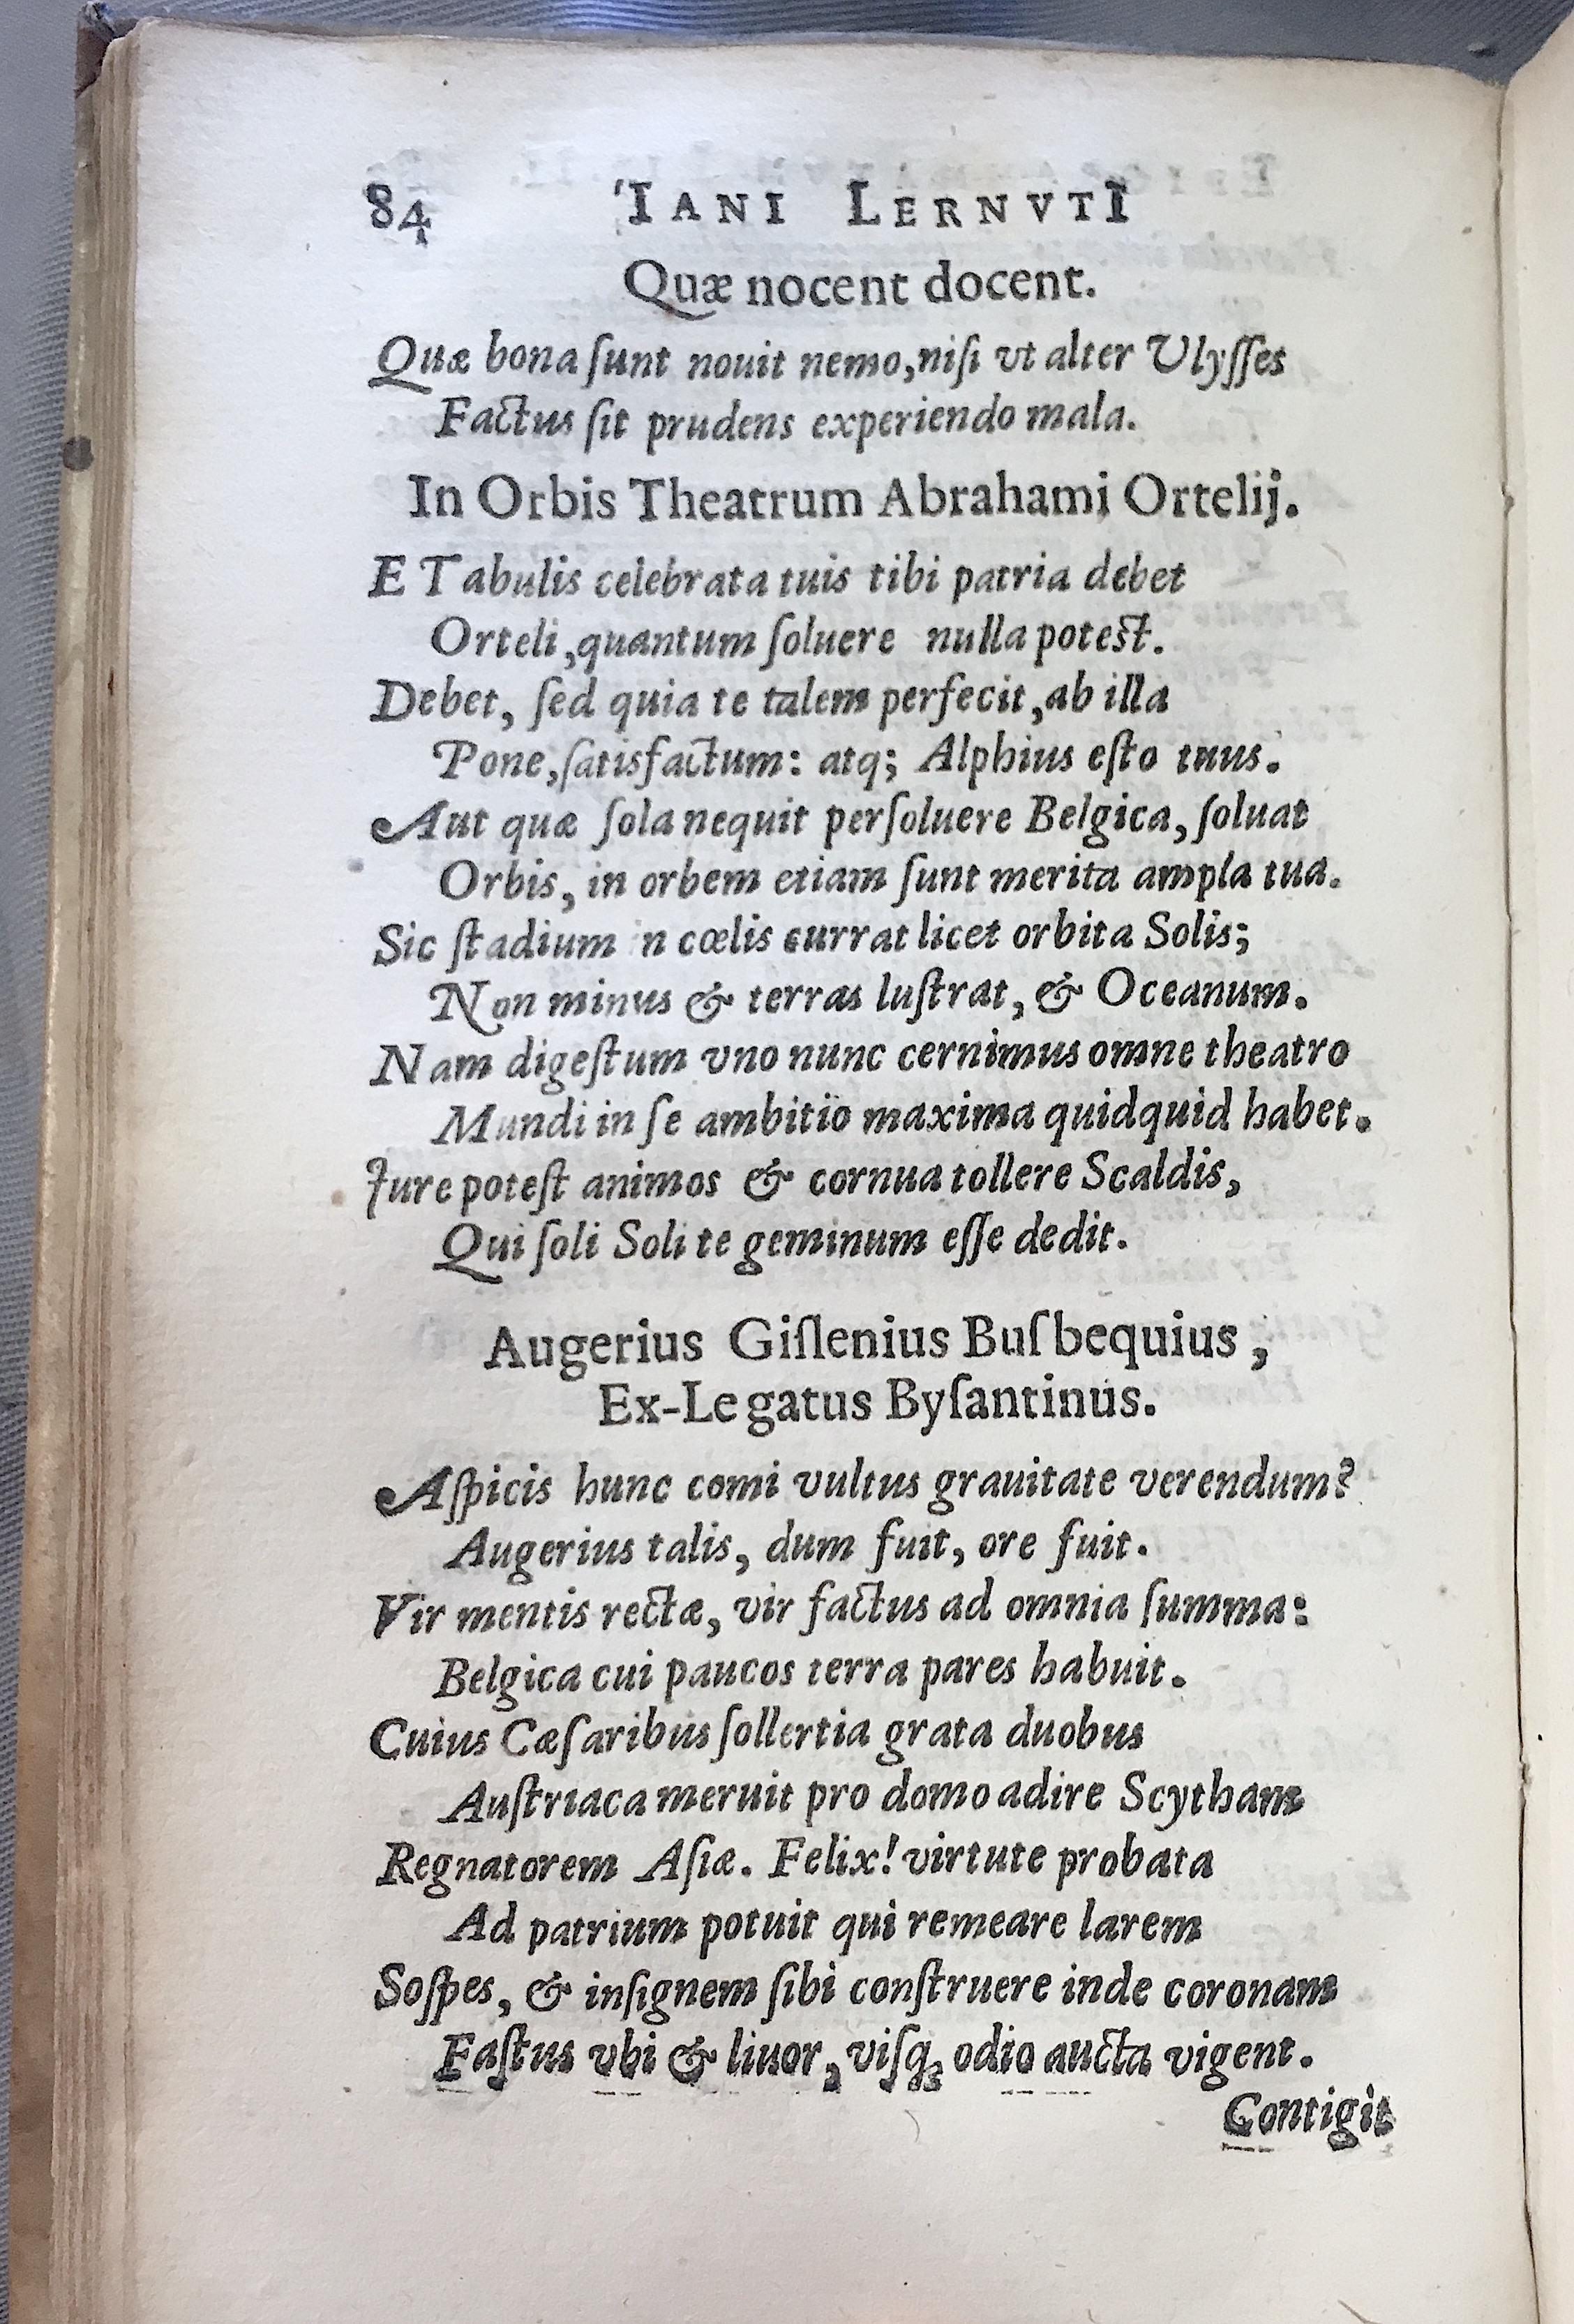 84 IANI LERNVTI
Quæ nocent docent.
Quæ bona ſunt nouit nemo, niſi vt alter Ulyſſes
Factus ſit prudens experiendo mala.
In Orbis Theatrum Abrahami Ortelij.
E Tabulis celebrata tuis tibi patria debet
Orteli, quantum ſoluere nulla poteſt.
Debet, ſed quia te talem perfecit, ab illa
Pone, ſatisfactum: atq; Alphius eſto tuus.
Aut quæ ſola nequit perſoluere Belgica, ſoluat
Orbis, in orbem etiam ſunt merita ampla tua.
Sic ſtadium n cœlis currat licet orbita Solis;
Non minus & terras luſtrat, & Oceanum.
Nam digeſtum vno nunc cernimus omne theatro
Mundi in ſe ambitïo maxima quidquid habet.
Jure poteſt animos & cornua tollere Scaldis,
Qui ſoli Soli te geminum eſſe dedit.
Augerius Giſlenius Buſbequius,
Ex-Legatus Byſantinus.
Aſpicis hunc comi vultus grauitate verendum?
Augerius talis, dum fuit, ore fuit.
Vir mentis rectæ, vir factus ad omnia ſumma:
Belgica cui paucos terra pares habuit.
Cuius Cæſaribus ſollertia grata duobus
Auſtriaca meruit pro domo adire Scytham
Regnatorem Aſiæ. Felix! virtute probata
Ad patrium potuit qui remeare larem
Soſpes, & inſignem ſibi conſtruere inde coronam
Faſtus vbi & liuor, viſq; odio aucta vigent.
Contigit